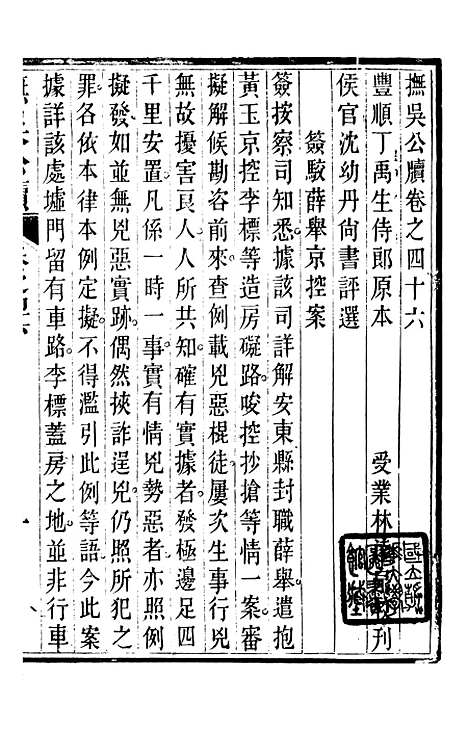 撫吳公牘卷之四十六
豐順丁禹生侍郎原本
受業林
刊
侯官沈幼丹尚書評選
簽駁薛舉京控案
簽按察司知悉據該司詳解安東縣封職薛舉遣抱
黃玉京控李標等造房礙路唆控抄搶等情一案審
擬解候勘咨前來查例載兇惡棍徒屢次生事行兇
無故擾害良人人所共知確有實據者發極邊足四
千里安置凡係一時一事實有情兇勢惡者亦照例
擬發如並無兇惡實跡偶然挾詐逞兇仍照所犯之
罪各依本律本例定擬不得濫引此例等語今此案
據詳該處墟門留有車路李標蓋房之地並非行車
一